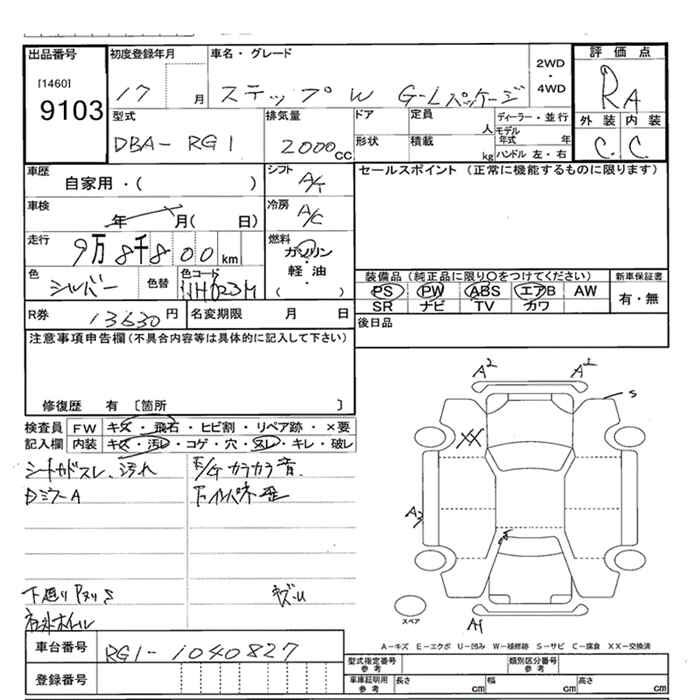 出品番号 初度登録年月 車名・グレード 2WD・4WD 評価点
[1460]
9103 17 月 ステップW G-Lパッケージ RA
型式 排気量 ドア 定員 人 ディーラー・並行 外装 内装
DBA-RG1 2000cc 形状 積載 kg モデル年式 年 ハンドル 左・右 C C
車歴 自家用・( ) シフト A/T セールスポイント (正常に機能するものに限ります)
車検 年 月( 日) 冷房 A/C
走行 9万8千800km 燃料 ガソリン
色 シルバー 色替 色コード 軽油 ( )
装備品 (純正品に限り〇をつけてください) 新車保証書
PS PW ABS エアB AW 有・無
SR ナビ TV カワ
R券 13630円 名変期限 月 日
後日品
注意事項申告欄 (不具合内容等は具体的に記入して下さい)
修復歴 有 〔箇所 〕
A2 A2
S
検査員 FW キズ・飛石・ヒビ割・リペア跡・×要
記入欄 内装 キズ・汚レ・コゲ・穴・スレ・キレ・破レ
XX
シートカドスレ、汚れ E/Gカラカラ音
DミラーA
下廻り
スペア
A1
車台番号 RG1-1040827
A-キズ E-エクボ U-凹み W-補修跡 S-サビ C-腐食 XX-交換済
登録番号
型式指定番号 参考 類別区分番号 参考
車庫証明用 参考 長さ cm 幅 cm 高さ cm